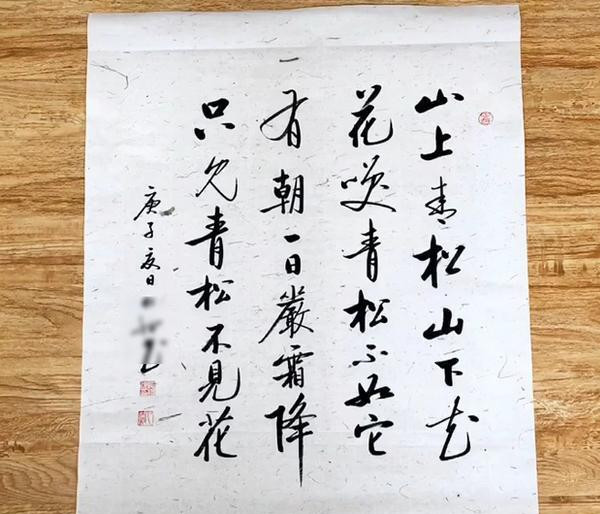 山上青松山下花
花咲青松不如它
有朝一日嚴霜降
只见青松不見花
庚子夏日